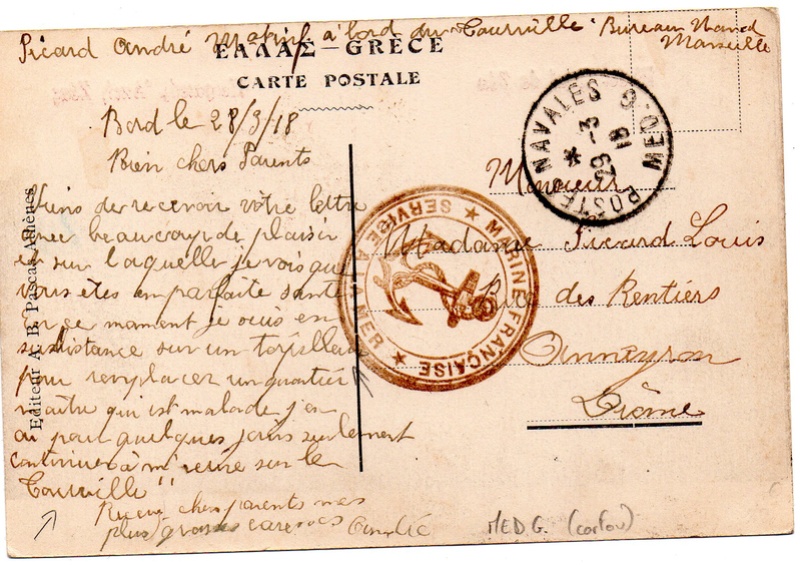 Picard André Matelot à bord du "Tourville" Bureau Naval
Marseille
ΕΛΛΑΣ – GRÈCE
CARTE POSTALE
Bord le 28/3/18
Bien chers Parents
Viens de recevoir votre lettre
avec beaucoup de plaisir
et sur laquelle je vois que
vous êtes en parfaite santé
en ce moment je suis en
subsistance sur un torpilleur
pour remplacer un quartier
maître qui est malade j'en
ai pour quelques jours seulement
continuer à m'écrire sur le
Tourville"
Recevez chers parents mes
plus grosses caresses André
Editeur A. B. Pascas Athènes
POSTES NAVALES MED.G
29 -3
18
MARINE FRANÇAISE
SERVICE A LA MER
Monsieur
Madame Picard Louis
Rue des Rentiers
Anneyron
Drôme
MED G. (corfou)